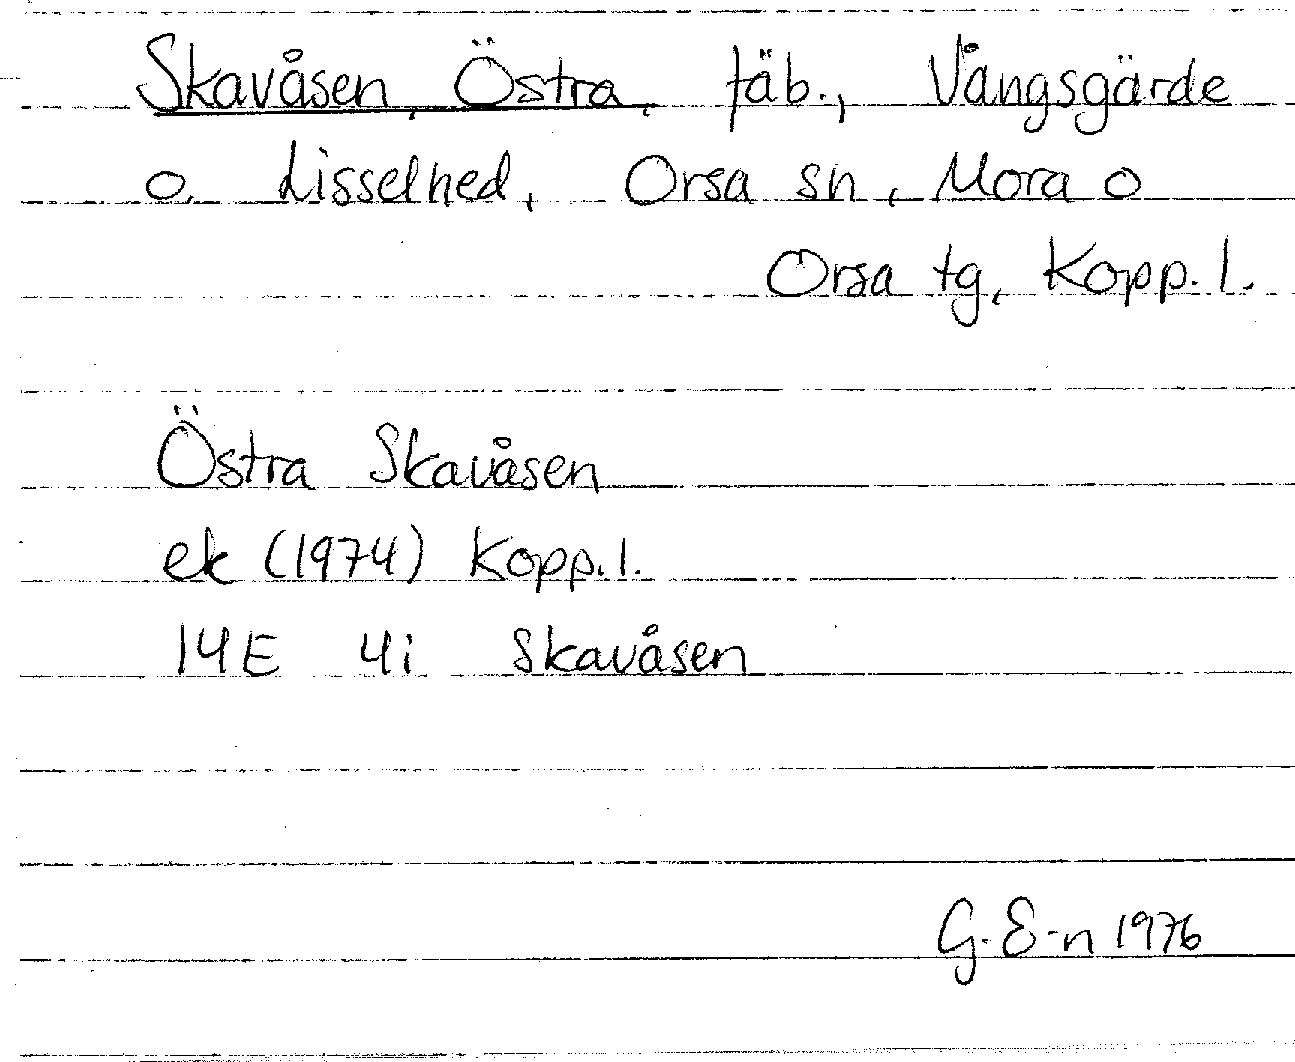 Skavåsen, Östra, fäb., Vångsgärde
o. Lisselhed, Orsa sn, Mora o
Orsa tg, Kopp. l.
Östra Skavåsen
ek (1974) Kopp. l.
14E 4i Skavåsen
G. E-n 1976